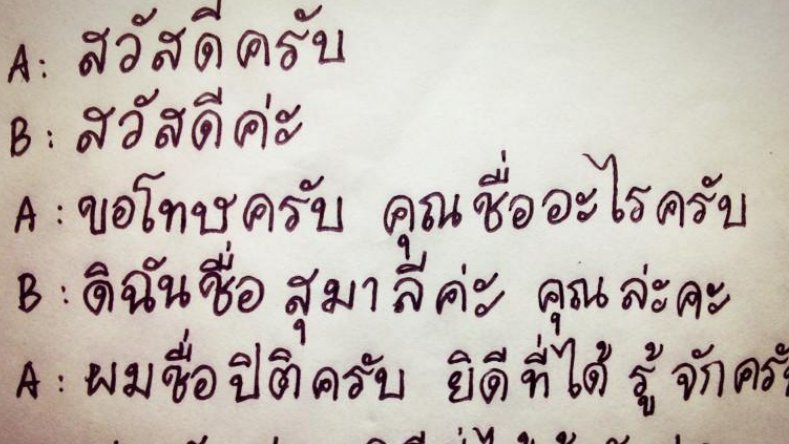 A: สวัสดีครับ
B: สวัสดีค่ะ
A: ขอโทษครับ คุณชื่ออะไรครับ
B: ดิฉันชื่อ สุมาลีค่ะ คุณล่ะคะ
A: ผมชื่อปิติครับ ยิดีที่ได้ รู้ จักครับ